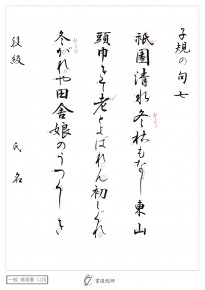 子規の句 七
祇園清水冬枯もなし東山
頭巾きて老とよばれん初しぐれ
冬がれや田舎娘のうつくしき
段級 氏名
一般 実用書 12月
書道技師